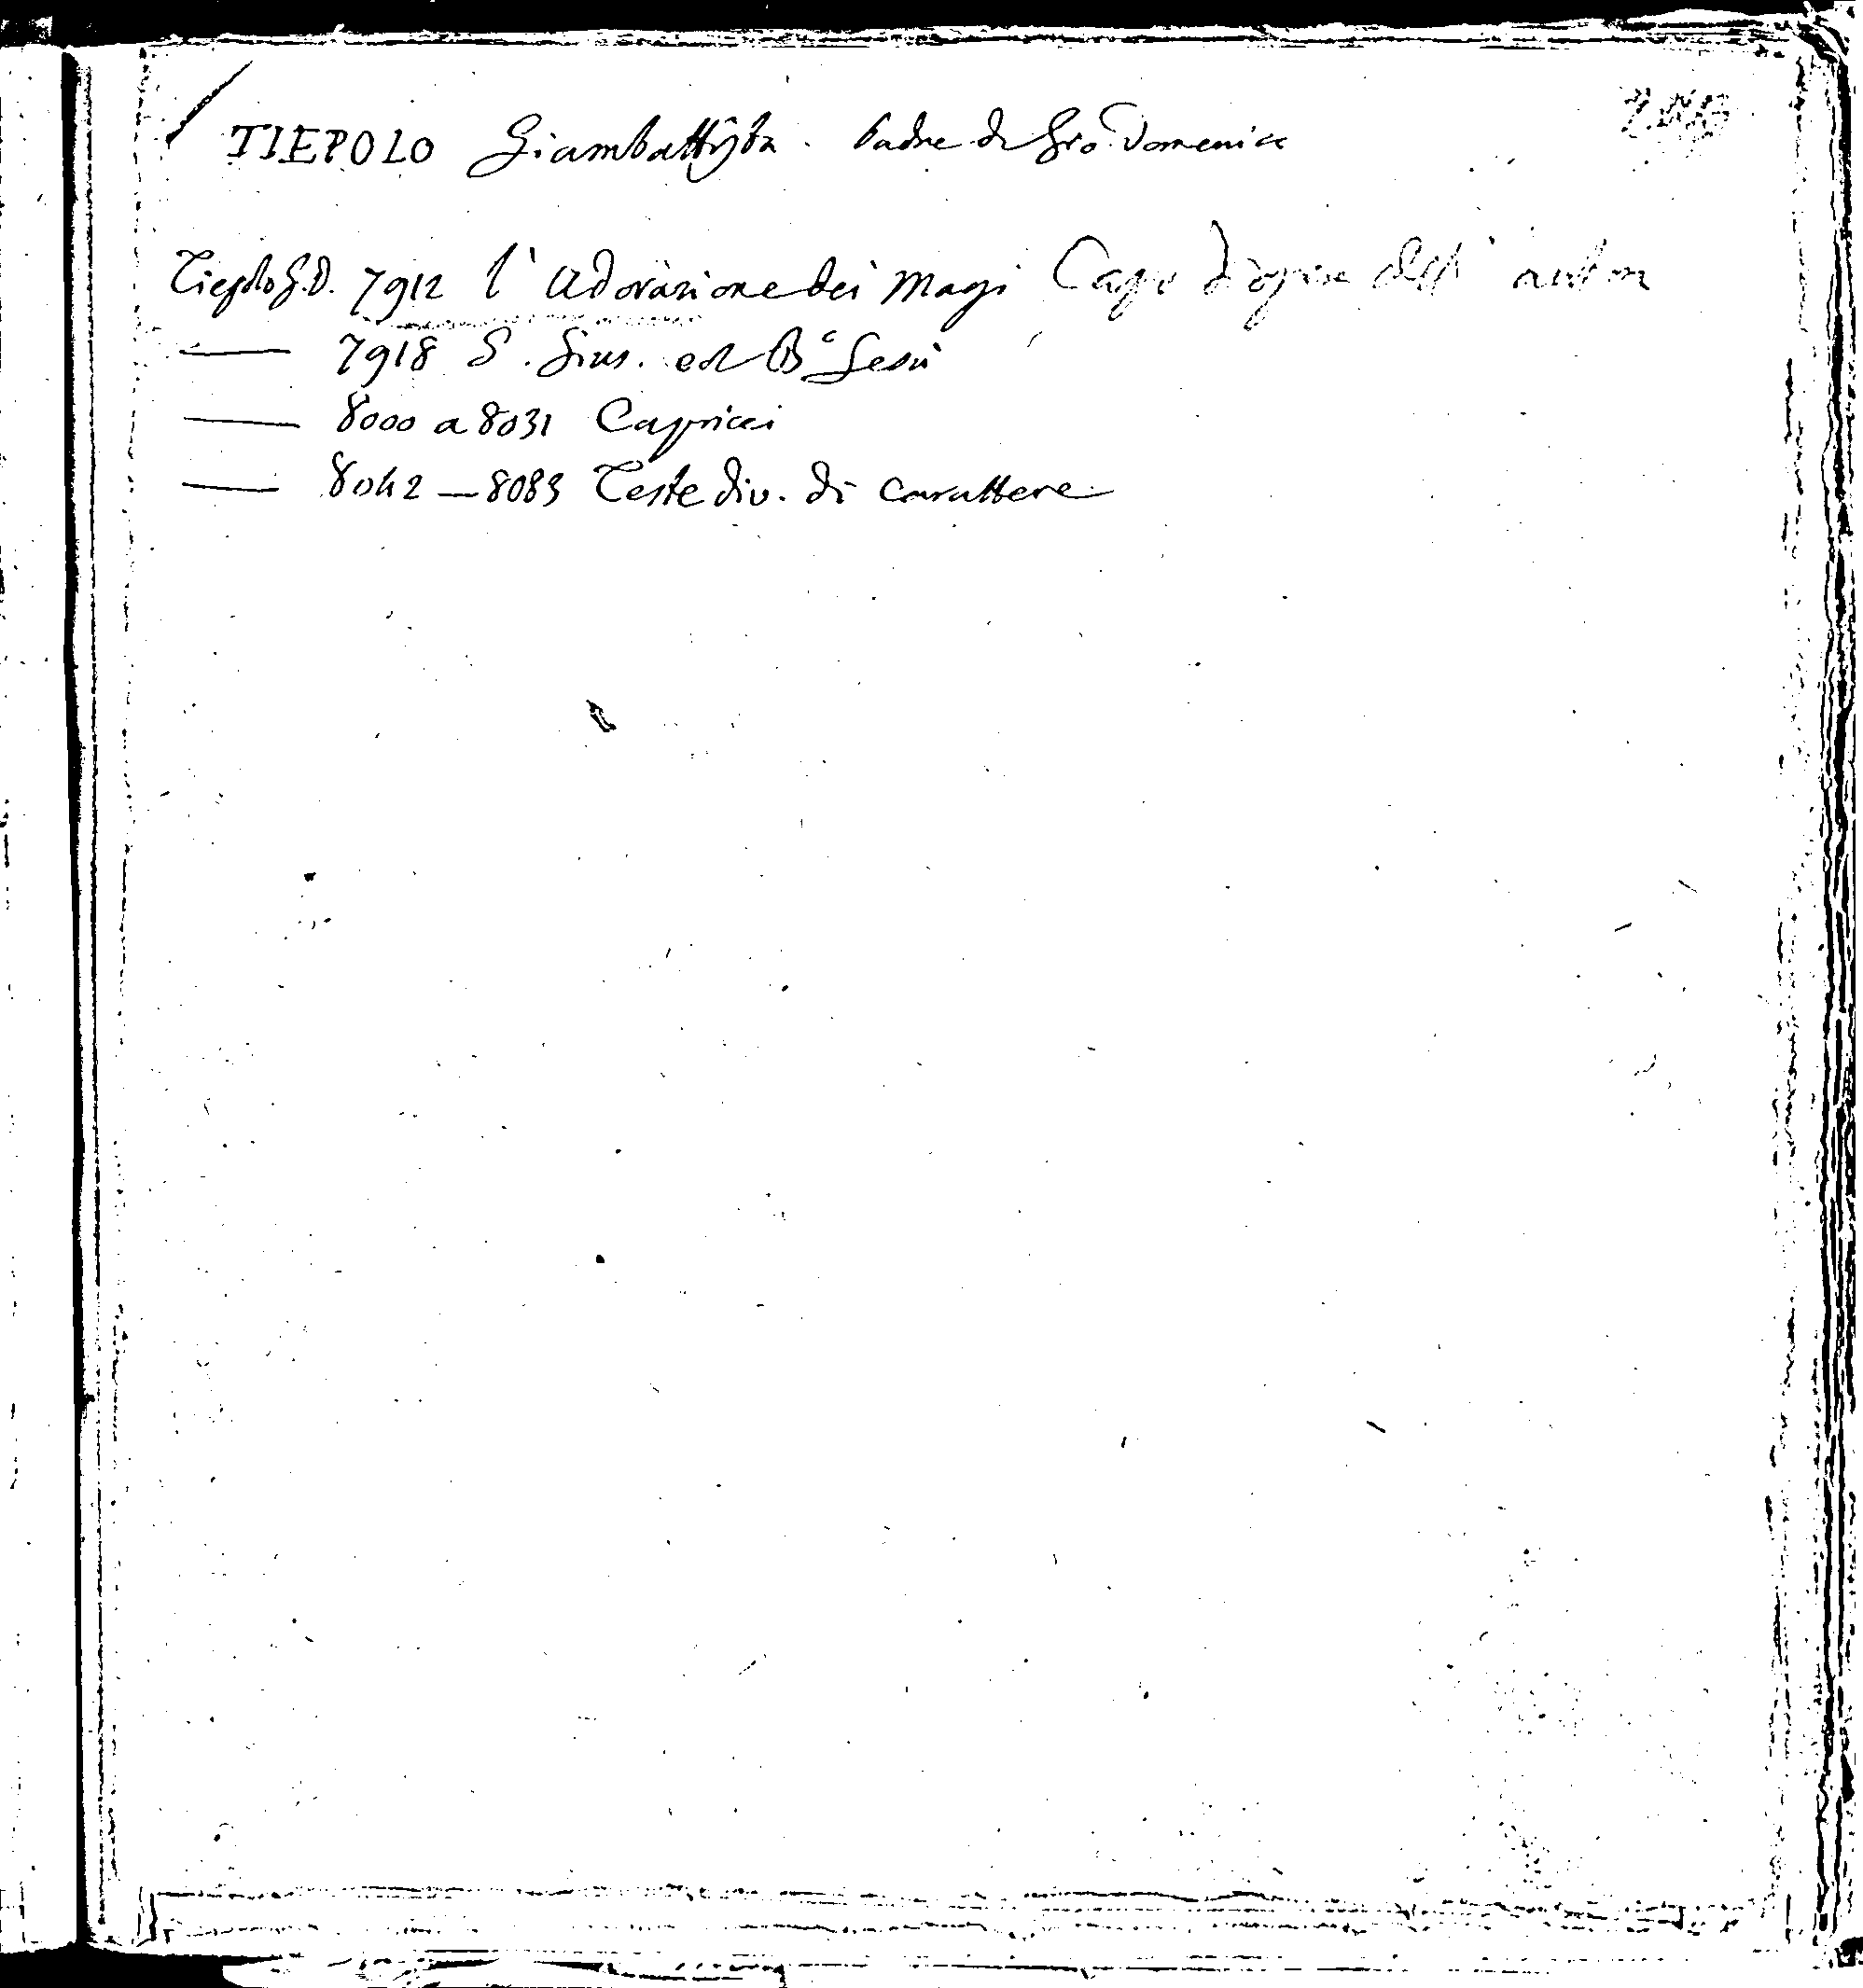 TIEPOLO Giambattista. Padre di Gio. Domenico
Tiepolo G.D. 7912 l'Adorazione dei Magi Capo d'opera dell'autore
— 7918 S. Gius. ed B.º Gesù
— 8000 a 8031 Capricci
— 8042 — 8083 Teste div. di Carattere